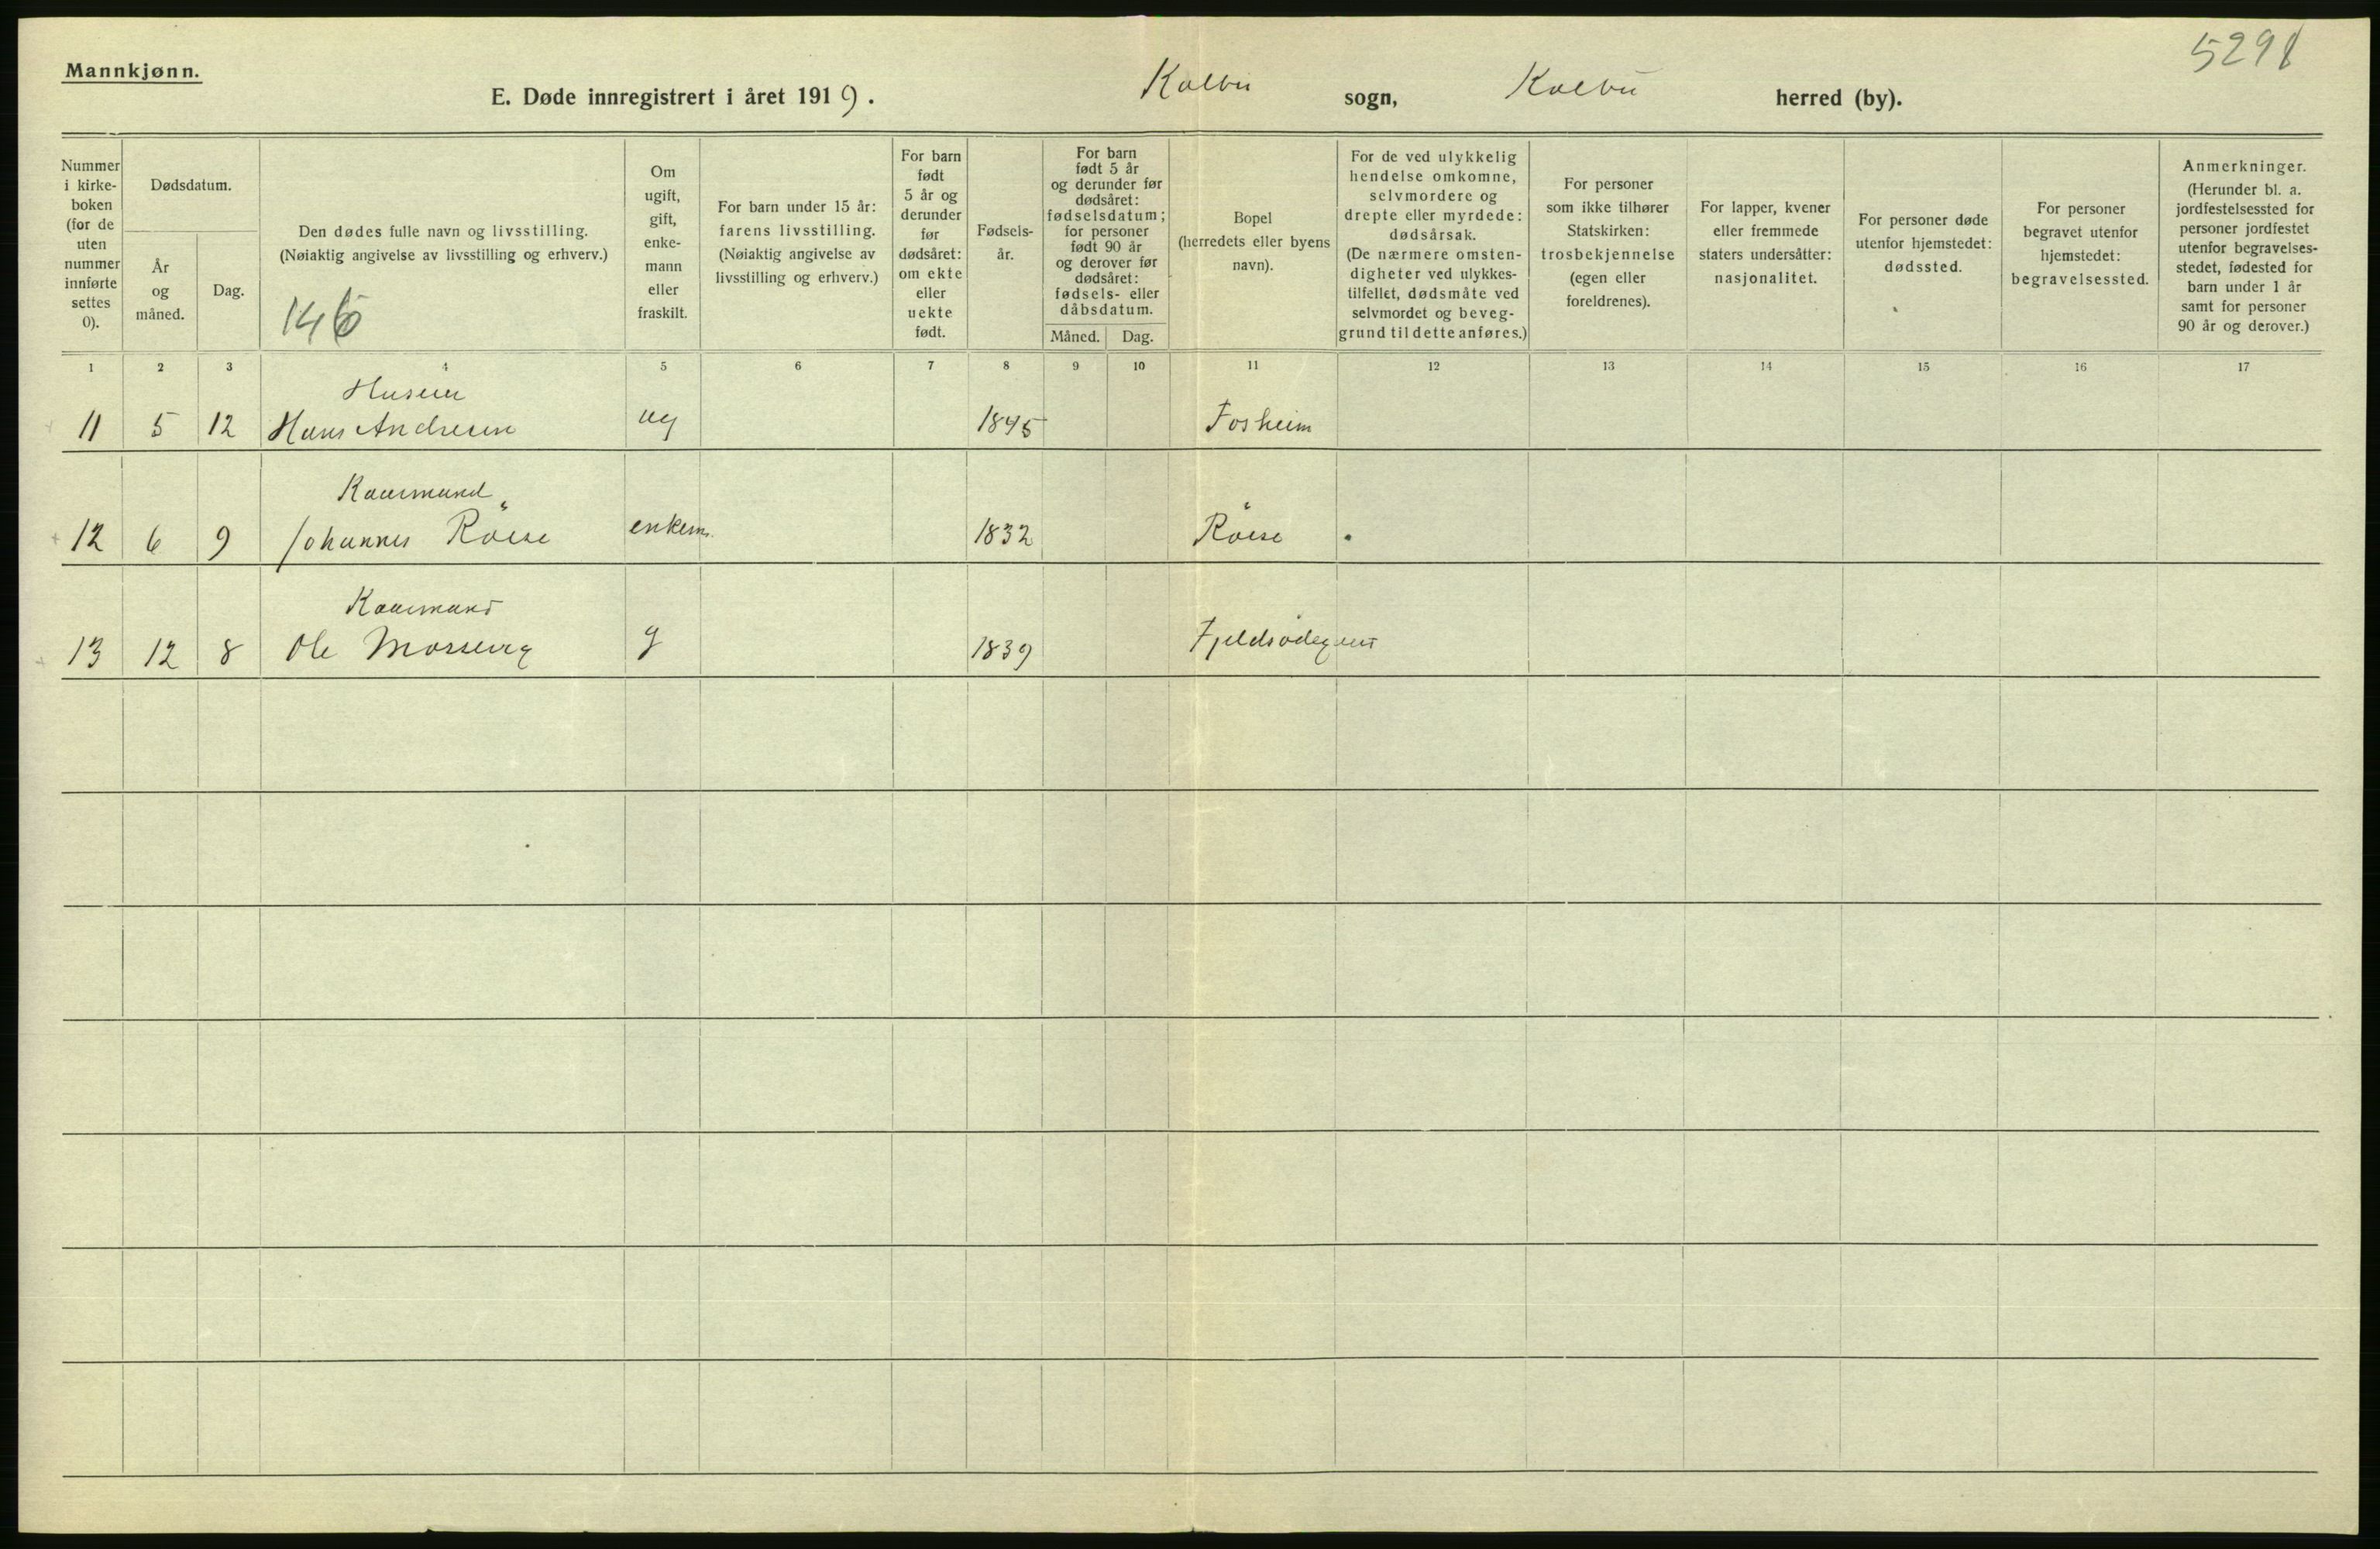 5291
Mannkjønn.
E. Døde innregistrert i året 1919. Kolbu sogn, Kolbu herred (by).
Nummer i kirke-boken (for de uten nummer innførte settes 0).
Dødsdatum.
År og måned.
Dag.
Den dødes fulle navn og livsstilling.
(Nøiaktig angivelse av livsstilling og erhverv.)
146
Om ugift, gift, enke-mann eller fraskilt.
For barn under 15 år: farens livsstilling.
(Nøiaktig angivelse av livsstilling og erhverv.)
For barn født 5 år og derunder før dødsåret: om ekte eller uekte født.
Fødsels-år.
For barn født 5 år og derunder før dødsåret: fødselsdatum; for personer født 90 år og derover før dødsåret: fødsels- eller dåbsdatum.
Måned.
Dag.
Bopel (herredets eller byens navn).
For de ved ulykkelig hendelse omkomne, selvmordere og drepte eller myrdede: dødsårsak.
(De nærmere omsten-digheter ved ulykkes-tilfellet, dødsmåte ved selvmordet og beveg-grund til dette anføres.)
For personer som ikke tilhører Statskirken: trosbekjennelse (egen eller foreldrenes).
For lapper, kvener eller fremmede staters undersåtter: nasjonalitet.
For personer døde utenfor hjemstedet: dødssted.
For personer begravet utenfor hjemstedet: begravelsessted.
Anmerkninger.
(Herunder bl. a. jordfestelsessted for personer jordfestet utenfor begravelses-stedet, fødested for barn under 1 år samt for personer 90 år og derover.)
1 2 3 4 5 6 7 8 9 10 11 12 13 14 15 16 17
11 5 12 Hans Andresen ug 1845 Fosheim
Kaarmand
12 6 9 Johannes Röise enkem. 1832 Röise
Kaarmand
13 12 8 Ole Mosseng g 1839